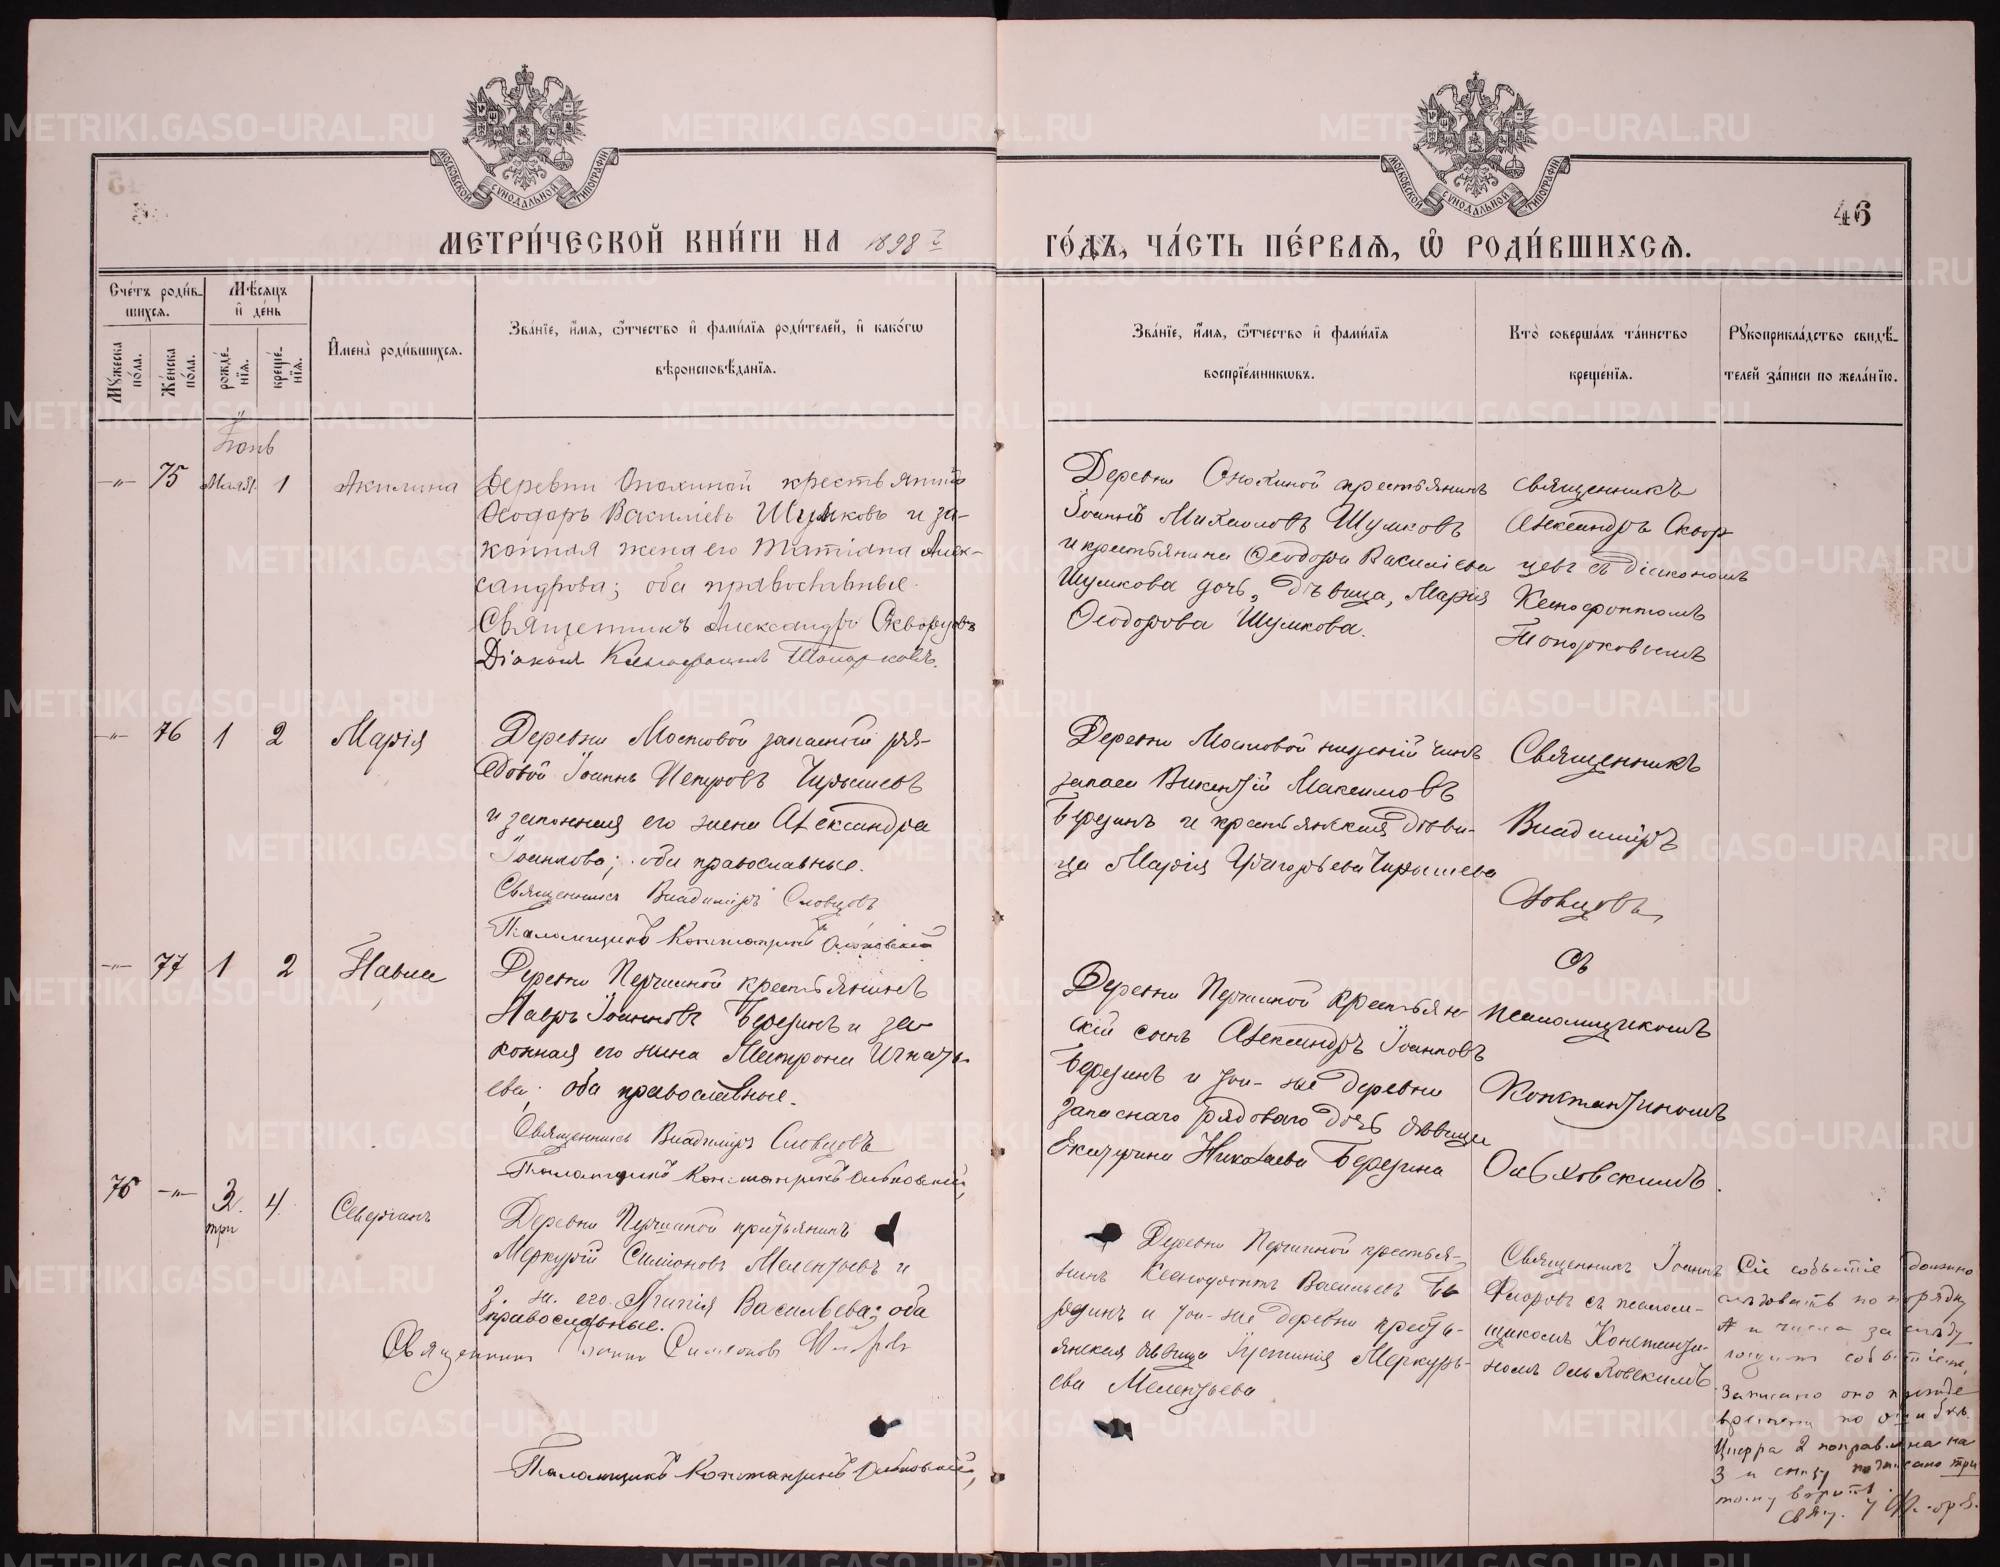 МОСКОВСКОЙ СУНОДАЛЬНОЙ ТИПОГРАФІИ
МОСКОВСКОЙ СУНОДАЛЬНОЙ ТИПОГРАФІИ
46
МЕТРИ́ЧЕСКОЙ КНИ́ГИ НА 1898 г.
ГО́ДЪ, ЧА́СТЬ ПЕ́РВАЯ, Ѡ РОДИ́ВШИХСЯ.
Сче́тъ роди́в-
шихся.
Му́жеска по́ла.
Же́нска по́ла.
Мѣ́сяцъ
и де́нь
рожде́нїя.
креще́нїя.
Имена̀ роди́вшихся.
Зва́нїе, и́мя, ѻ́тчество и фами́лїя роди́телей, и како́гѡ
вѣроисповѣ́данїя.
Зва́нїе, и́мя, ѻ́тчество и фами́лїя
воспрїе́мникѡвъ.
Кто̀ соверша́лъ та́инство
креще́нїя.
Рукоприкла́дство свидѣ́-
телей за́писи по жела́нїю.
Іюнь
-„- 75 Мая 31. 1 Акилина
Деревни Онохиной крестьянинъ
Ѳеодоръ Василіевъ Шумковъ и за-
конная жена его Татіана Алек-
сандрова; оба православные.
Священникъ Александръ Скворцовъ
Діаконъ Ксенофонтъ Топорковъ.
Деревни Онохиной крестьянинъ
Іоаннъ Михаиловъ Шумковъ
и крестьянина Ѳеодора Василіева
Шумкова дочь, дѣвица, Марія
Ѳеодорова Шумкова.
Священникъ
Александръ Сквор
цевъ съ діакономъ
Ксенофонтомъ
Топорковымъ
-„- 76 1 2 Марія
Деревни Мостовой запасный ря-
довой Іоаннъ Петровъ Чирышевъ
и законная его жена Александра
Іоаннова; оба православные.
Священникъ Владиміръ Словцовъ
Псаломщикъ Константинъ Ольховскій
Деревни Мостовой нижній чинъ
запаса Викентій Максимовъ
Березинъ и крестьянская дѣви-
ца Марія Григорьева Чирышева
Священникъ
Владиміръ
Словцовъ
съ
псаломщикомъ
Константиномъ
Ольховскимъ.
-„- 77 1 2 Павла
Деревни Першиной крестьянинъ
Павръ Іоанновъ Березинъ и за-
конная его жена Матрона Игнать-
ева; оба православные.
Священникъ Владиміръ Словцовъ
Псаломщикъ Константинъ Ольховскій,
Деревни Першиной крестьян-
скій сынъ Александръ Іоанновъ
Березинъ и той-же деревни
запаснаго рядоваго дочь дѣвица
Екатерина Николаева Березина
76 -„- 3. 4. Северіанъ
три
Деревни Першиной крестьянинъ
Меркурій Симіоновъ Мелентьевъ и
з. ж. его Агапія Васильева; оба
православные.
Священникъ Іоаннъ Симеоновъ Флоровъ
Псаломщикъ Константинъ Ольховскій,
Деревни Першиной крестья-
нинъ Ксенофонтъ Васильевъ Бе
резинъ и той-же деревни кресть-
янская дѣвица Іустинія Меркурь-
ева Мелентьева
Священникъ Іоаннъ
Флоровъ съ псалом-
щикомъ Константи-
номъ Ольховскимъ.
Сіе событіе должно
слѣдовать по порядку
№ и числа за
событіемъ,
Записано оно прежде
времени по ошибкѣ.
Цифра 2 поправлена на
3 и снизу подписано три
тому вѣрить.
Свящ. І. Флоровъ.
METRIKI.GASO-URAL.RU